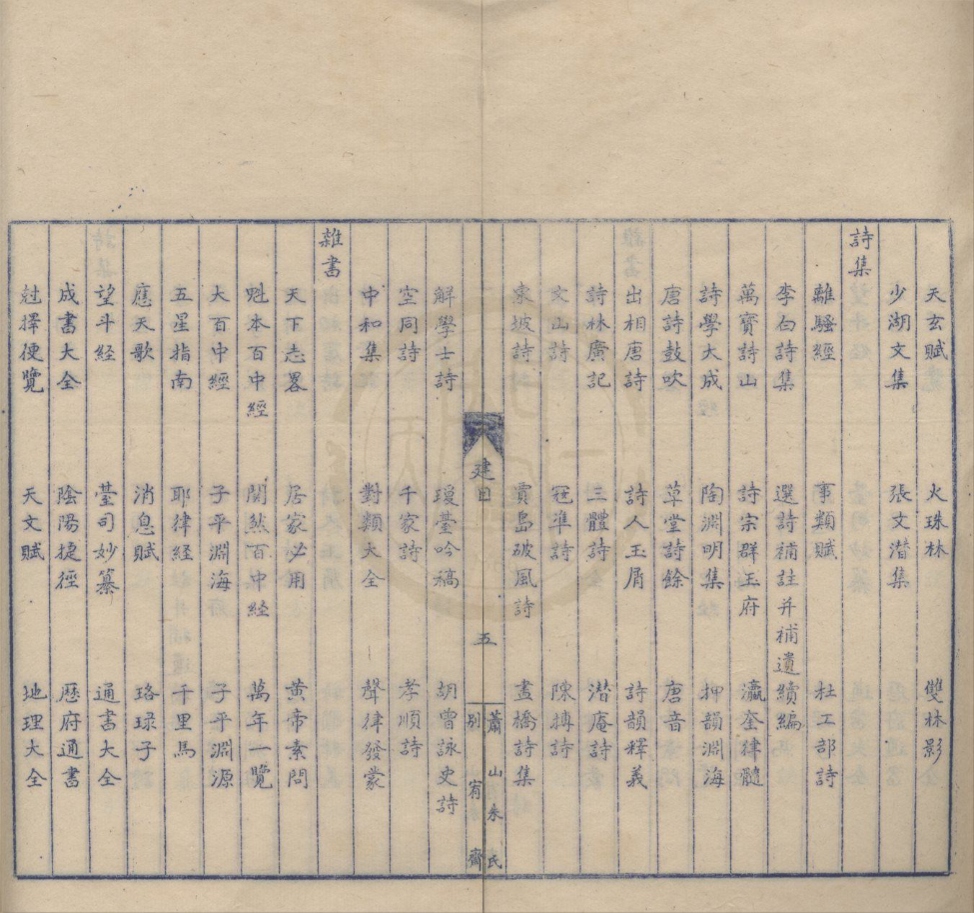 天玄賦 火珠林 雙林影
少湖文集 張文潛集
詩集
離騷經 事類賦 杜工部詩
李白詩集 選詩補註并補遺續編
萬寶詩山 詩宗群玉府 瀛奎律髓
詩學大成 陶淵明集 押韻淵海
唐詩鼓吹 草堂詩餘 唐音
出相唐詩 詩人玉屑 詩韻釋義
詩林廣記 三體詩 潛庵詩
文山詩 冦準詩 陳摶詩
東坡詩 賈島破風詩 畫橋詩集
建目 五 蕭山朱氏
別宥齋
解學士詩 瓊臺吟稿 胡曾詠史詩
空同詩 千家詩 孝順詩
中和集 對類大全 聲律發蒙
雜書
天下志畧 居家必用 黃帝素問
魁本百中經 関煞百中経 萬年一覽
大百中經 子平淵海 子平淵源
五星指南 耶律經 千里馬
應天歌 消息賦 珞琭子
望斗經 臺司妙纂 通書大全
成書大全 陰陽捷徑 厯府通書
尅擇便覽 天文賦 地理大全